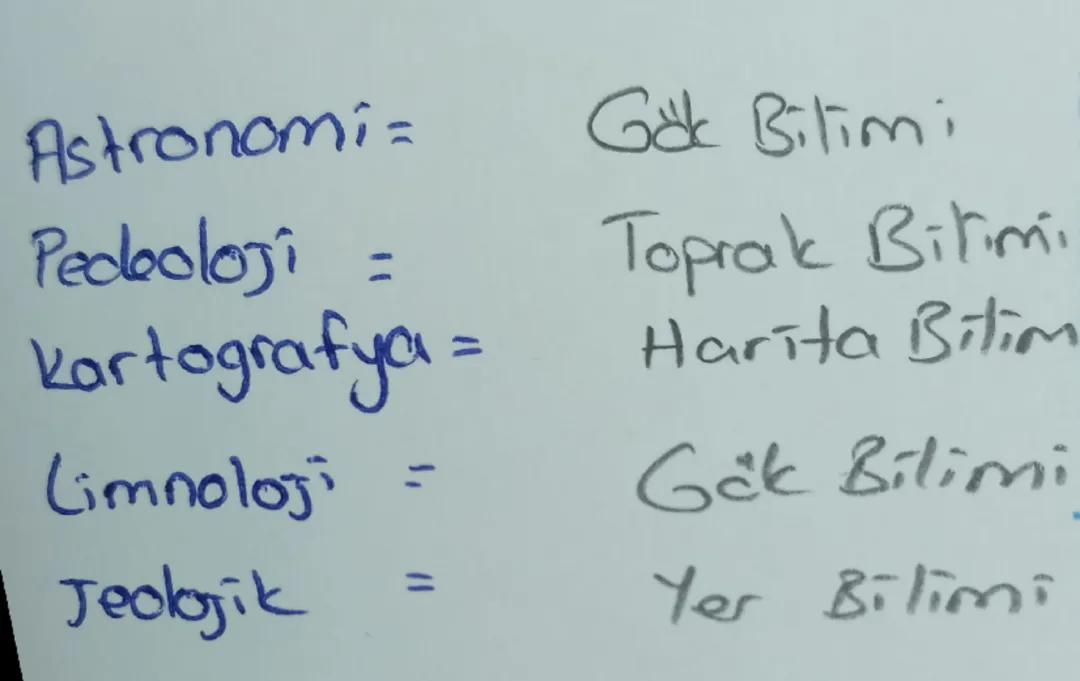 Astronomi = Gök Bilimi
Pedooloji = Toprak Bilimi
Kartografya = Harita Bilim
Limnoloji = Gök Bilimi
Jeolojik = Yer Bilimi